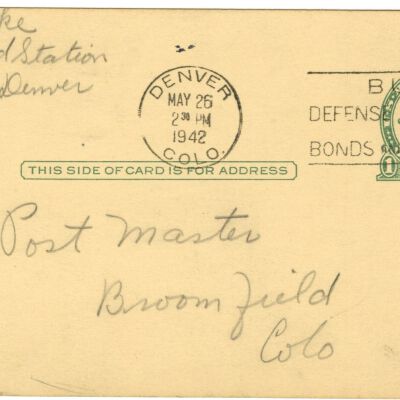 ke
d Station
Denver
DENVER
MAY 26
2 30 PM
1942
COLO.
B
DEFENS
BONDS
THIS SIDE OF CARD IS FOR ADDRESS
1
Post Master
Broomfield
Colo